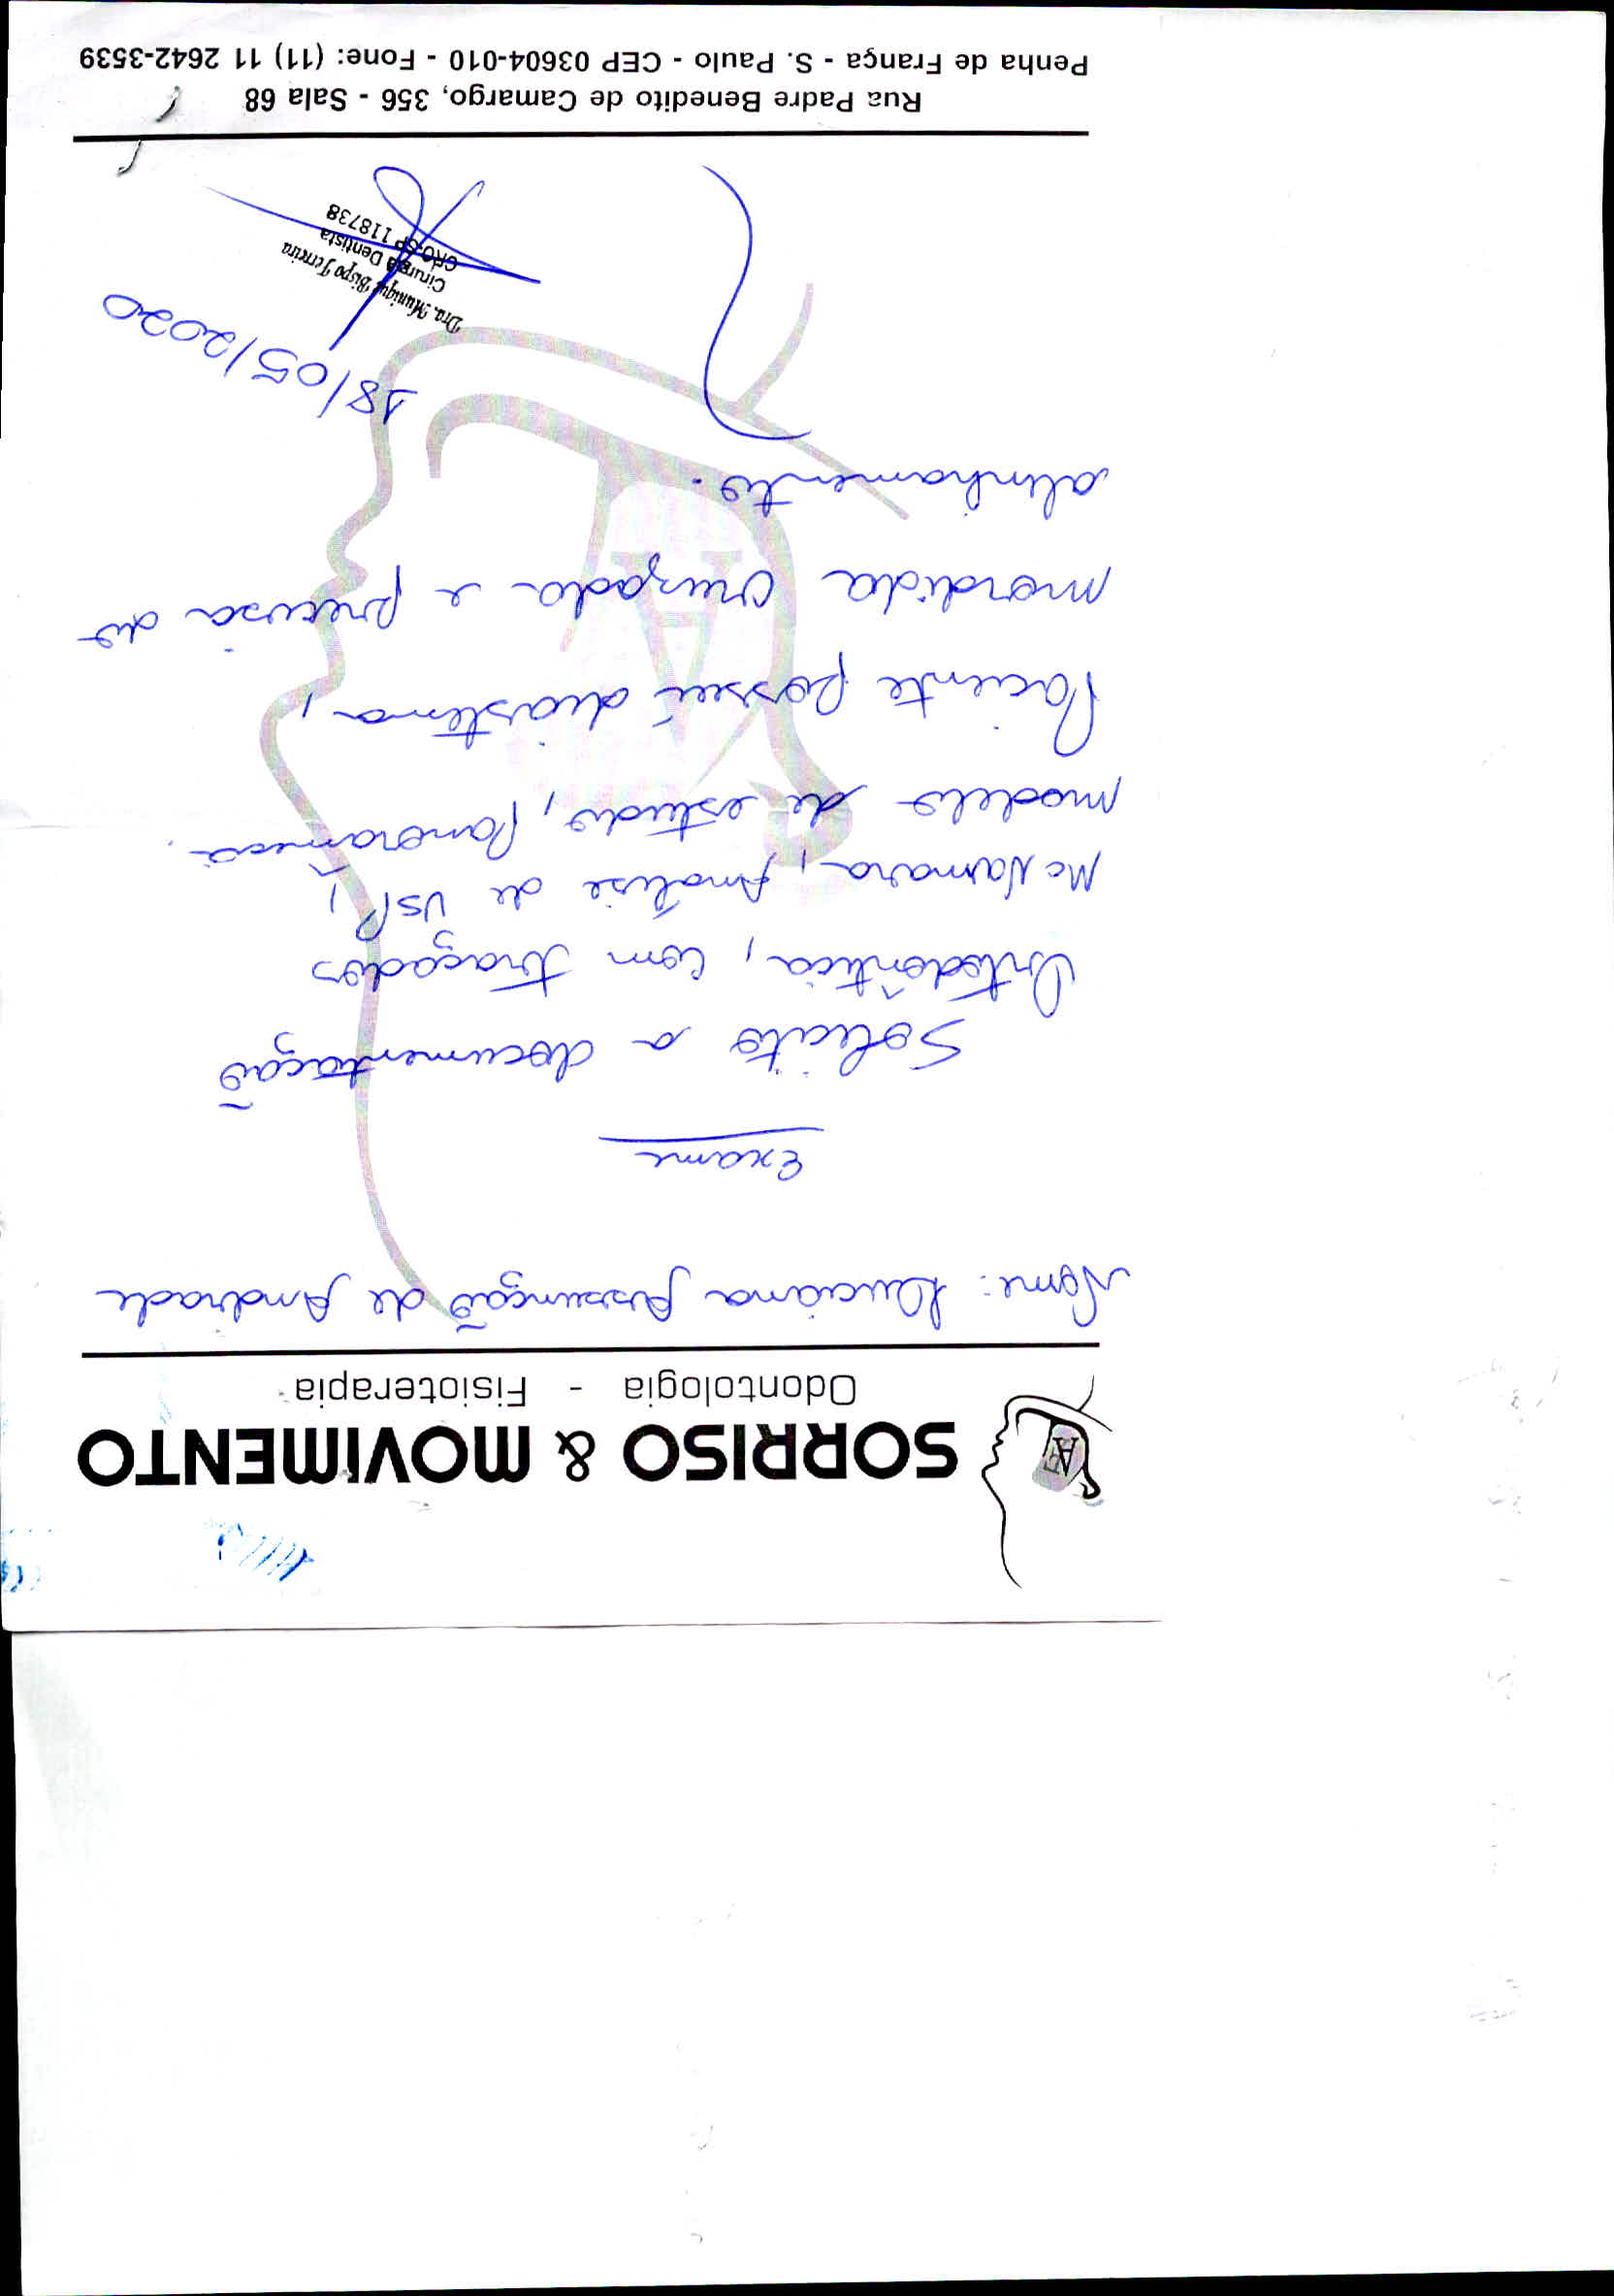 SORRISO & MOVIMENTO
Odontologia - Fisioterapia
Nome: Luciana Assunção de Andrade
Exame
Solicito a documentação
Ortodôntica, com traçados
McNamara, Análise de USP,
modelo de estudo, Panoramica.
Paciente possui diastema,
mordida cruzada e precisa do
alinhamento.
18/05/2020
Dra. Munique Bispo Ferreira
Cirurgiã Dentista
CRO-SP 118738
Rua Padre Benedito de Camargo, 356 - Sala 68
Penha de França - S. Paulo - CEP 03604-010 - Fone: (11) 11 2642-3539